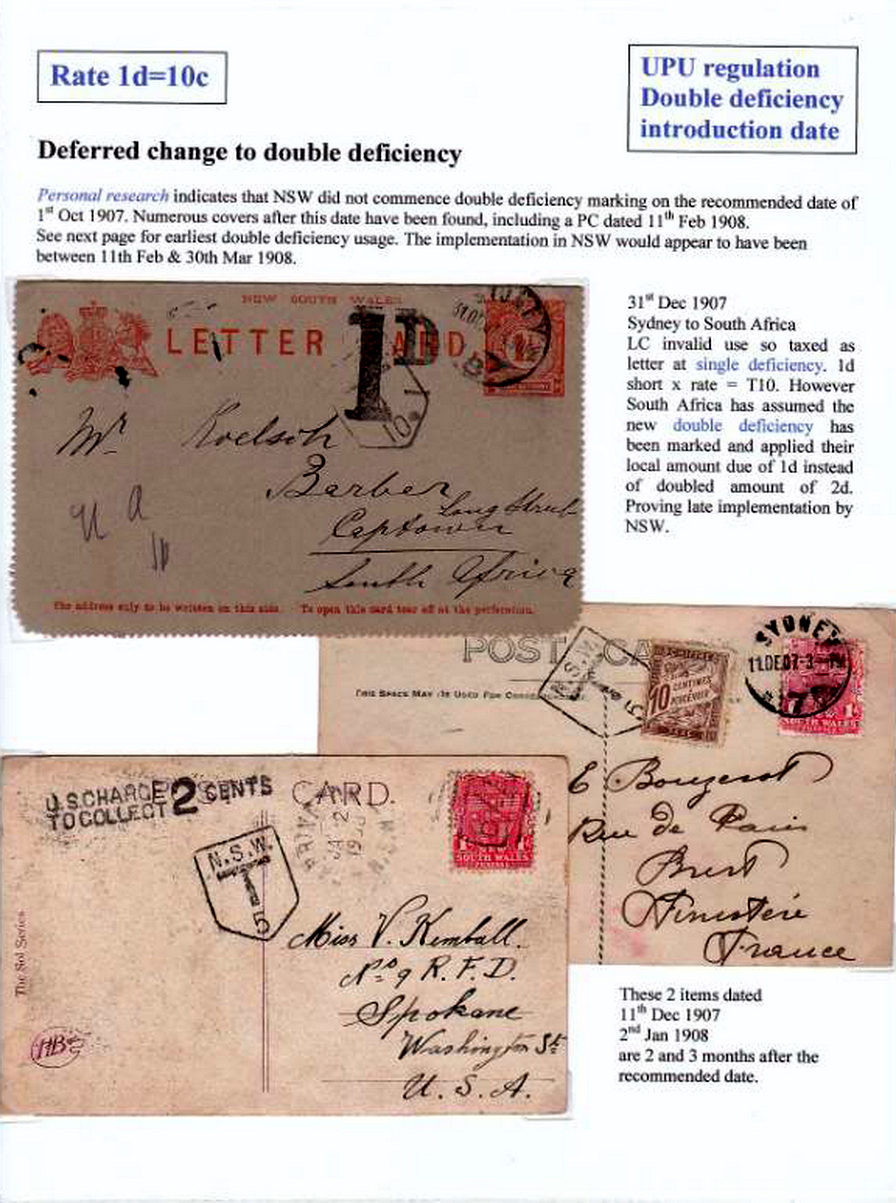 Rate 1d=10c
UPU regulation
Double deficiency
introduction date
Deferred change to double deficiency
Personal research indicates that NSW did not commence double deficiency marking on the recommended date of
1st Oct 1907. Numerous covers after this date have been found, including a PC dated 11th Feb 1908.
See next page for earliest double deficiency usage. The implementation in NSW would appear to have been
between 11th Feb & 30th Mar 1908.
NEW SOUTH WALES
LETTER CARD
1D
10
Mr Koelsch
Barber
Long Street
Captown
South Africa
1d
The address only to be written on this side. To open this card tear off at the perforation.
31st Dec 1907
Sydney to South Africa
LC invalid use so taxed as
letter at single deficiency. 1d
short x rate = T10. However
South Africa has assumed the
new double deficiency has
been marked and applied their
local amount due of 1d instead
of doubled amount of 2d.
Proving late implementation by
NSW.
POST CA
THIS SPACE MAY BE USED FOR
N.S.W.
T
5
10
CENTIMES
SYDNEY
11.DE.07-3-PM
7
SOUTH WALES
E Bouzerot
Rue de Paris
Brest
Finistère
France
U.S.CHARGE 2 CENTS
TO COLLECT
CARD.
N.S.W.
T
5
SOUTH WALES
The Sol Series
Miss V. Kemball.
No 9 R. F. D.
Spokane
Washington St
U. S. A.
These 2 items dated
11th Dec 1907
2nd Jan 1908
are 2 and 3 months after the
recommended date.